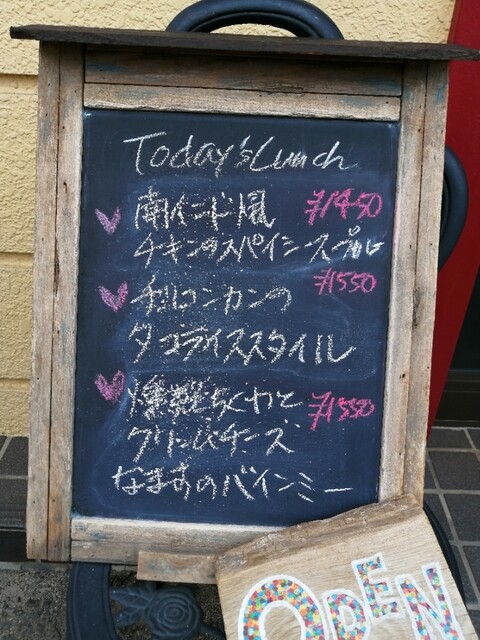 Today's Lunch
南インド風 ¥1450
チキンのスパイシースープ
チリコンカンの ¥1550
タコライススタイル
燻製ちくわと ¥1550
クリームチーズ
なますのバインミー
OPEN